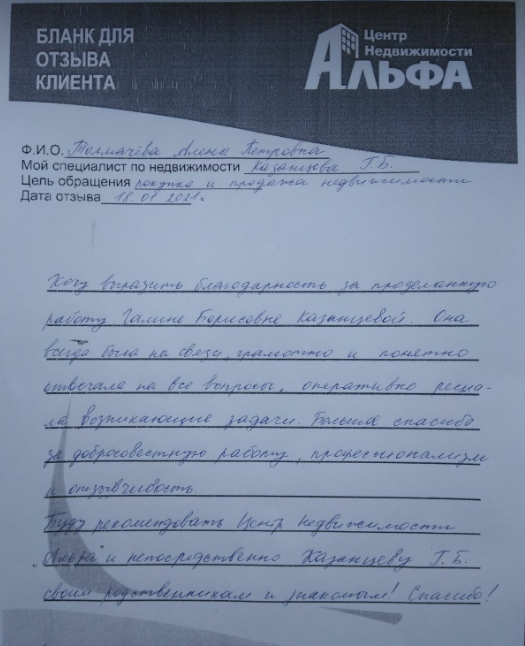 БЛАНК ДЛЯ
ОТЗЫВА
КЛИЕНТА
Центр
Недвижимости
АЛЬФА
Ф.И.О. Толмачёва Алена Петровна
Мой специалист по недвижимости Казанцева Г.Б.
Цель обращения покупка и продажа недвижимости
Дата отзыва 18.01.2021г
Хочу выразить благодарность за проделанную
работу Галине Борисовне Казанцевой. Она
всегда была на связи, грамотно и понятно
отвечала на все вопросы, оперативно реша-
ла возникающие задачи. Большое спасибо
за добросовестную работу, профессионализм
и отзывчивость.
Буду рекомендовать Центр Недвижимости
"Альфа" и непосредственно Казанцеву Г.Б.
своим родственникам и знакомым! Спасибо!